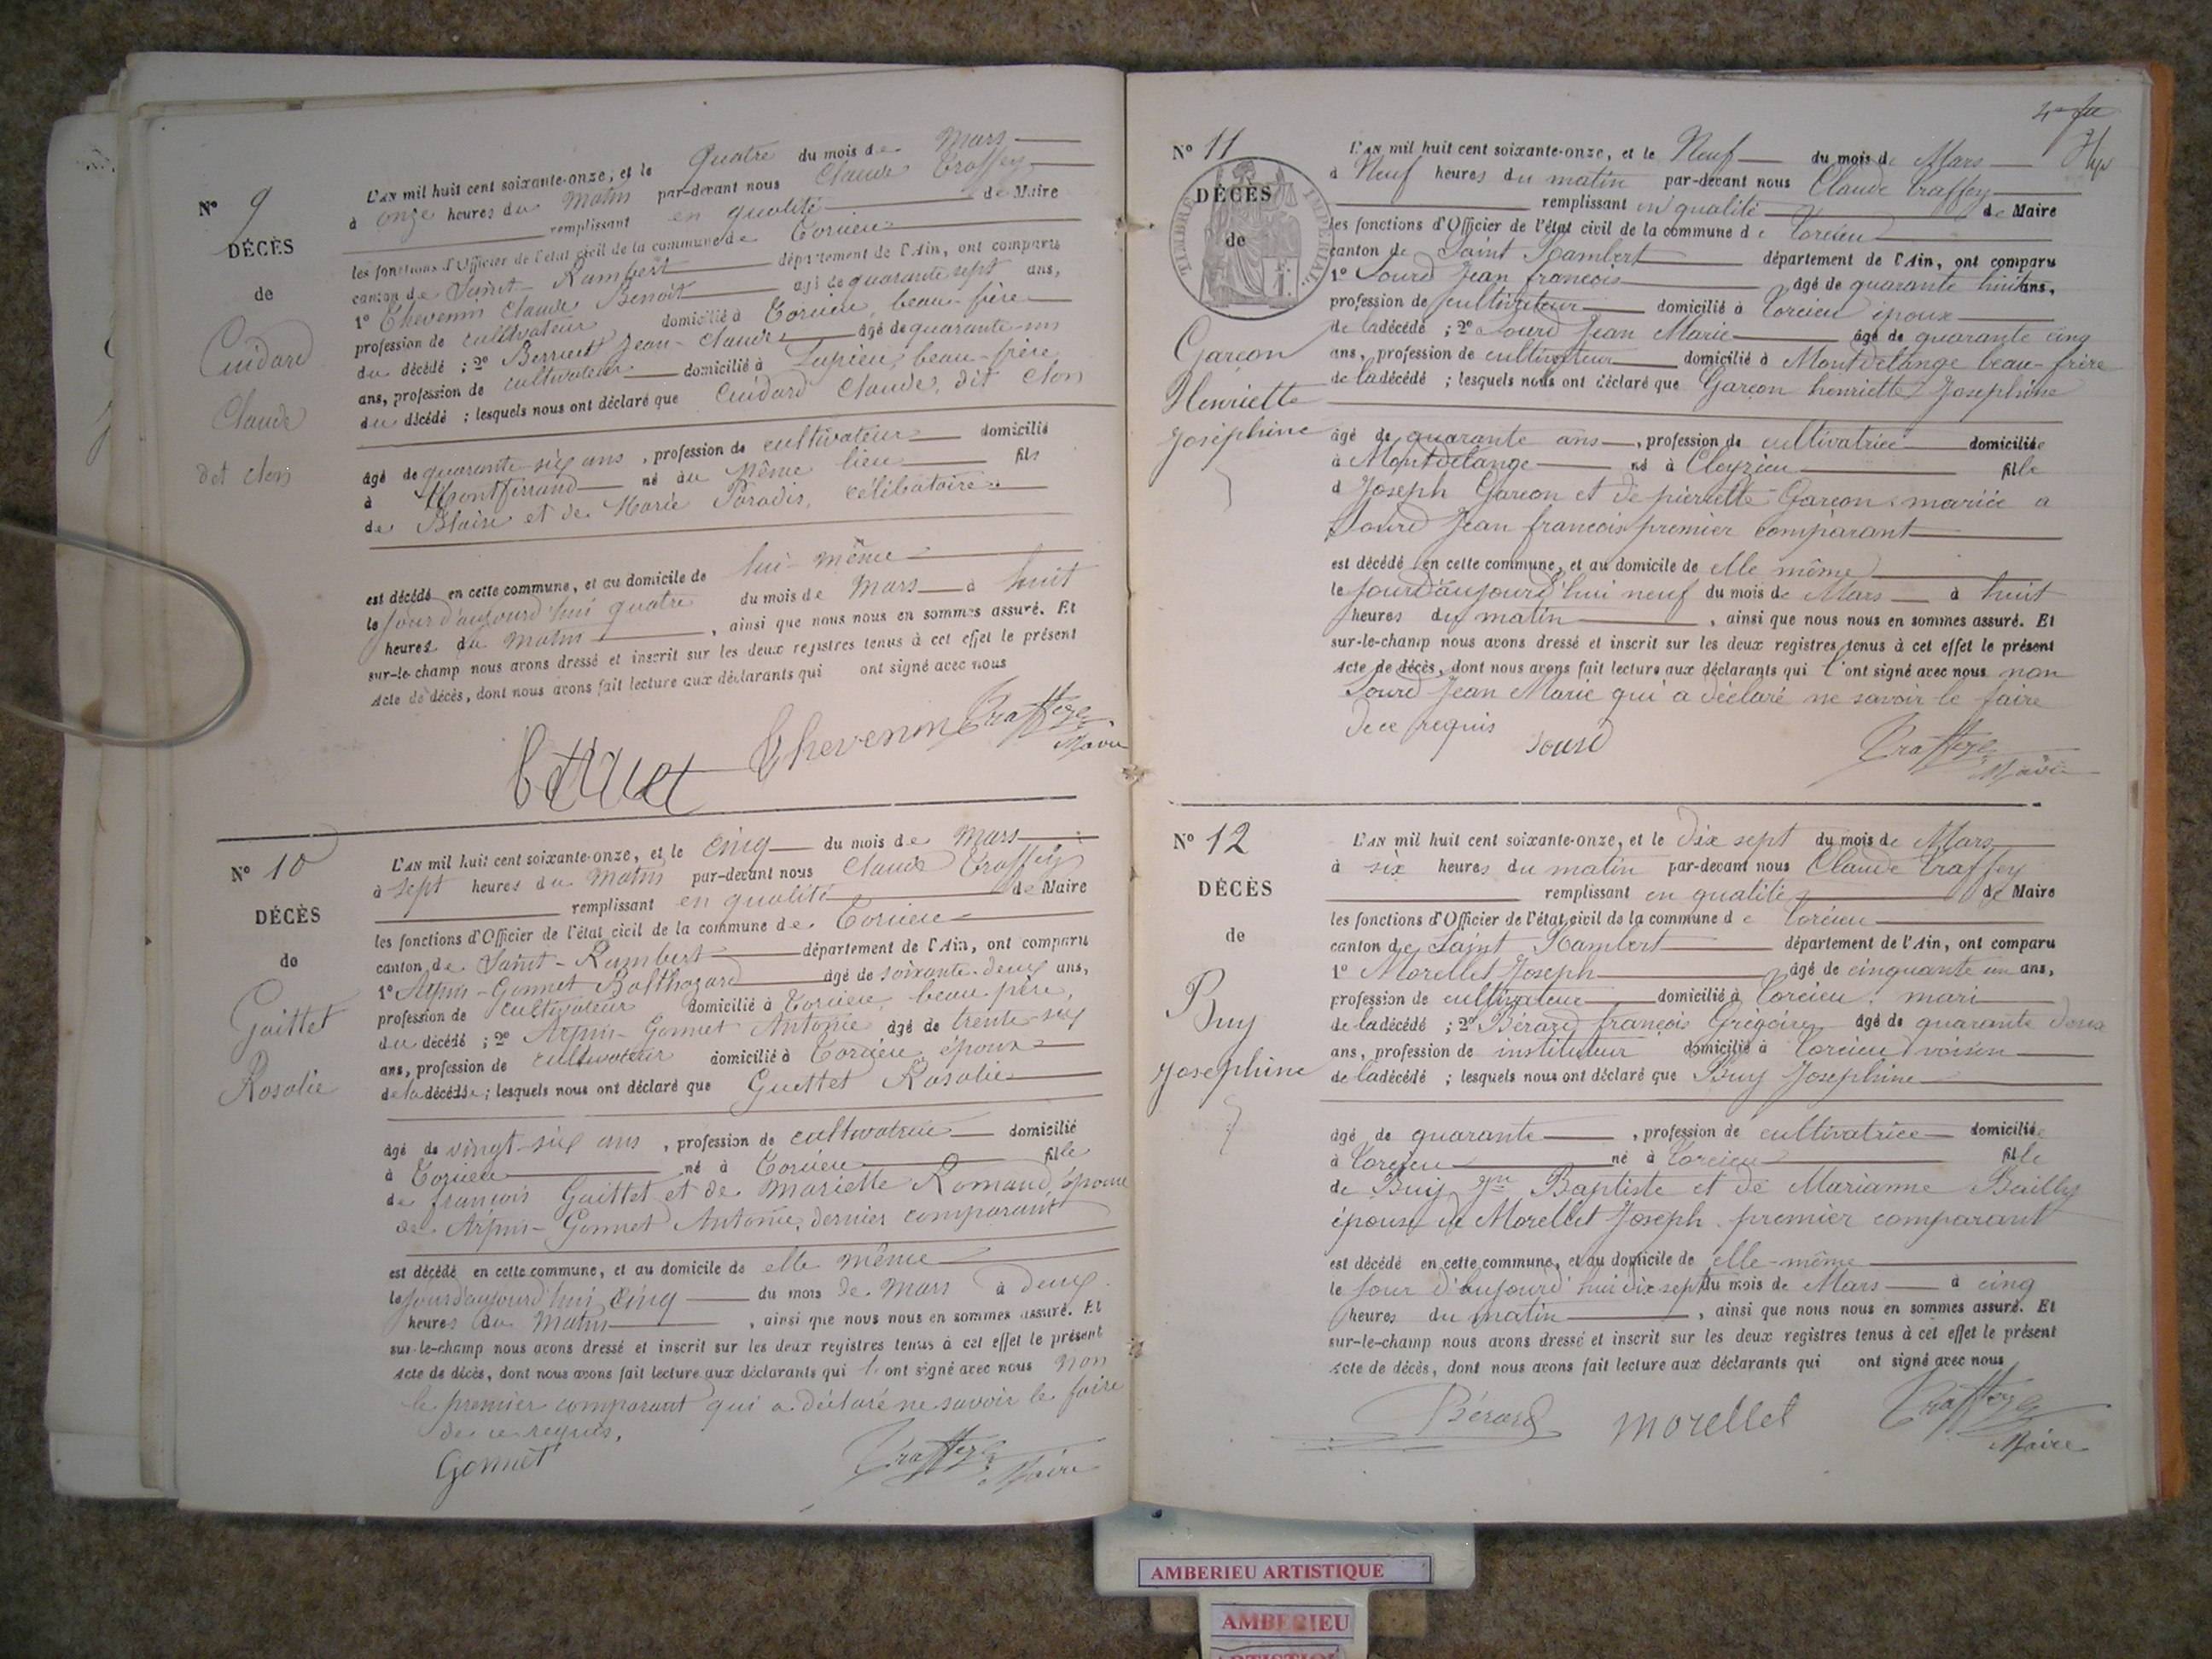 N° 9
DÉCÈS
de
Cuidard
Claude
dit clon
L'AN mil huit cent soixante-onze, et le Quatre du mois de Mars
à onze heures du Matin par-devant nous Claude Traffey
remplissant en qualité de Maire
les fonctions d'Officier de l'état civil de la commune de Torcieu
canton de Saint-Rambert département de l'Ain, ont comparu
1° Thevenin Claude Benoit âgé de quarante sept ans,
profession de cultivateur domicilié à Torcieu, beau-frère
du décédé ; 2° Berruet Jean-Claude âgé de quarante-un
ans, profession de cultivateur domicilié à Lupieu, beau-frère
du décédé ; lesquels nous ont déclaré que Cuidard Claude, dit clon
âgé de quarante-six ans, profession de cultivateur domicilié
à Montferrand né au Même lieu fils
de Blaise et de Marie Paradis, célibataire
est décédé en cette commune, et au domicile de lui-même
le jour d'aujourd'hui quatre du mois de Mars à huit
heures du Matin, ainsi que nous nous en sommes assuré. Et
sur-le-champ nous avons dressé et inscrit sur les deux registres tenus à cet effet le présent
Acte de décès, dont nous avons fait lecture aux déclarants qui ont signé avec nous
Thevenin Traffey
Maire
N° 10
DÉCÈS
de
Guittet
Rosalie
L'AN mil huit cent soixante-onze, et le Cinq du mois de Mars
à sept heures du Matin par-devant nous Claude Traffey
remplissant en qualité de Maire
les fonctions d'Officier de l'état civil de la commune de Torcieu
canton de Saint-Rambert département de l'Ain, ont comparu
1° Arpin-Gonnet Balthazard âgé de soixante-deux ans,
profession de cultivateur domicilié à Torcieu, beau père,
du décédé ; 2° Arpin-Gonnet Antoine âgé de trente-six
ans, profession de cultivateur domicilié à Torcieu époux
de la décédée ; lesquels nous ont déclaré que Guettet Rosalie
âgé de vingt-six ans, profession de cultivatrice domicilié
à Torcieu né à Torcieu fille
de françois Guittet et de Mariette Romand, épouse
de Arpin-Gonnet Antoine, dernier comparant
est décédé en cette commune, et au domicile de elle même
le jour d'aujourd'hui Cinq du mois de Mars à deux
heures du Matin, ainsi que nous nous en sommes assuré. Et
sur-le-champ nous avons dressé et inscrit sur les deux registres tenus à cet effet le présent
Acte de décès, dont nous avons fait lecture aux déclarants qui l'ont signé avec nous non
le premier comparant qui a déclaré ne savoir le faire
de ce requis.
Gonnet Traffey
Maire
N° 11
TIMBRE IMPÉRIAL
DÉCÈS
de
Garçon
Henriette
Joséphine
L'AN mil huit cent soixante-onze, et le Neuf du mois de Mars
à Neuf heures du matin par-devant nous Claude Traffey
remplissant en qualité de Maire
les fonctions d'Officier de l'état civil de la commune de Torcieu
canton de Saint Rambert département de l'Ain, ont comparu
1° Sourd Jean françois âgé de quarante huit ans,
profession de cultivateur domicilié à Torcieu époux
de la décédé ; 2° Sourd Jean Marie âgé de quarante cinq
ans, profession de cultivateur domicilié à Montdelange beau-frère
de la décédé ; lesquels nous ont déclaré que Garçon henriette Josephine
âgé de quarante ans, profession de cultivatrice domiciliée
à Montdelange né à Cleyzieu fille
d Joseph Garçon et de pierrette Garçon mariée a
Sourd Jean francois premier comparant
est décédé en cette commune, et au domicile de elle même
le jourd'aujourd'hui neuf du mois de Mars à huit
heures du matin, ainsi que nous nous en sommes assuré. Et
sur-le-champ nous avons dressé et inscrit sur les deux registres tenus à cet effet le présent
Acte de décès, dont nous avons fait lecture aux déclarants qui l'ont signé avec nous non
Sourd Jean Marie qui a déclaré ne savoir le faire
de ce requis
Sourd Traffey
Maire
N° 12
DÉCÈS
de
Buy
Josephine
L'AN mil huit cent soixante-onze, et le dix sept du mois de Mars
à six heures du matin par-devant nous Claude Traffey
remplissant en qualité de Maire
les fonctions d'Officier de l'état civil de la commune de Torcieu
canton de Saint Rambert département de l'Ain, ont comparu
1° Morellet Joseph âgé de cinquante un ans,
profession de cultivateur domicilié à Torcieu mari
de la décédé ; 2° Bérard françois Grégoire âgé de quarante deux
ans, profession de instituteur domicilié à Torcieu voisin
de la décédé ; lesquels nous ont déclaré que Buy Josephine
âgé de quarante, profession de cultivatrice domiciliée
à Torcieu né à Torcieu fille
de Buy Jn Baptiste et de Marianne Bailly
épouse de Morellet Joseph premier comparant
est décédé en cette commune, et au domicile de elle-même
le jour d'aujourd'hui dix sept du mois de Mars à cinq
heures du matin, ainsi que nous nous en sommes assuré. Et
sur-le-champ nous avons dressé et inscrit sur les deux registres tenus à cet effet le présent
Acte de décès, dont nous avons fait lecture aux déclarants qui ont signé avec nous
Bérard morellet Traffey
Maire
AMBERIEU ARTISTIQUE
AMBERIEU
ARTISTIQUE